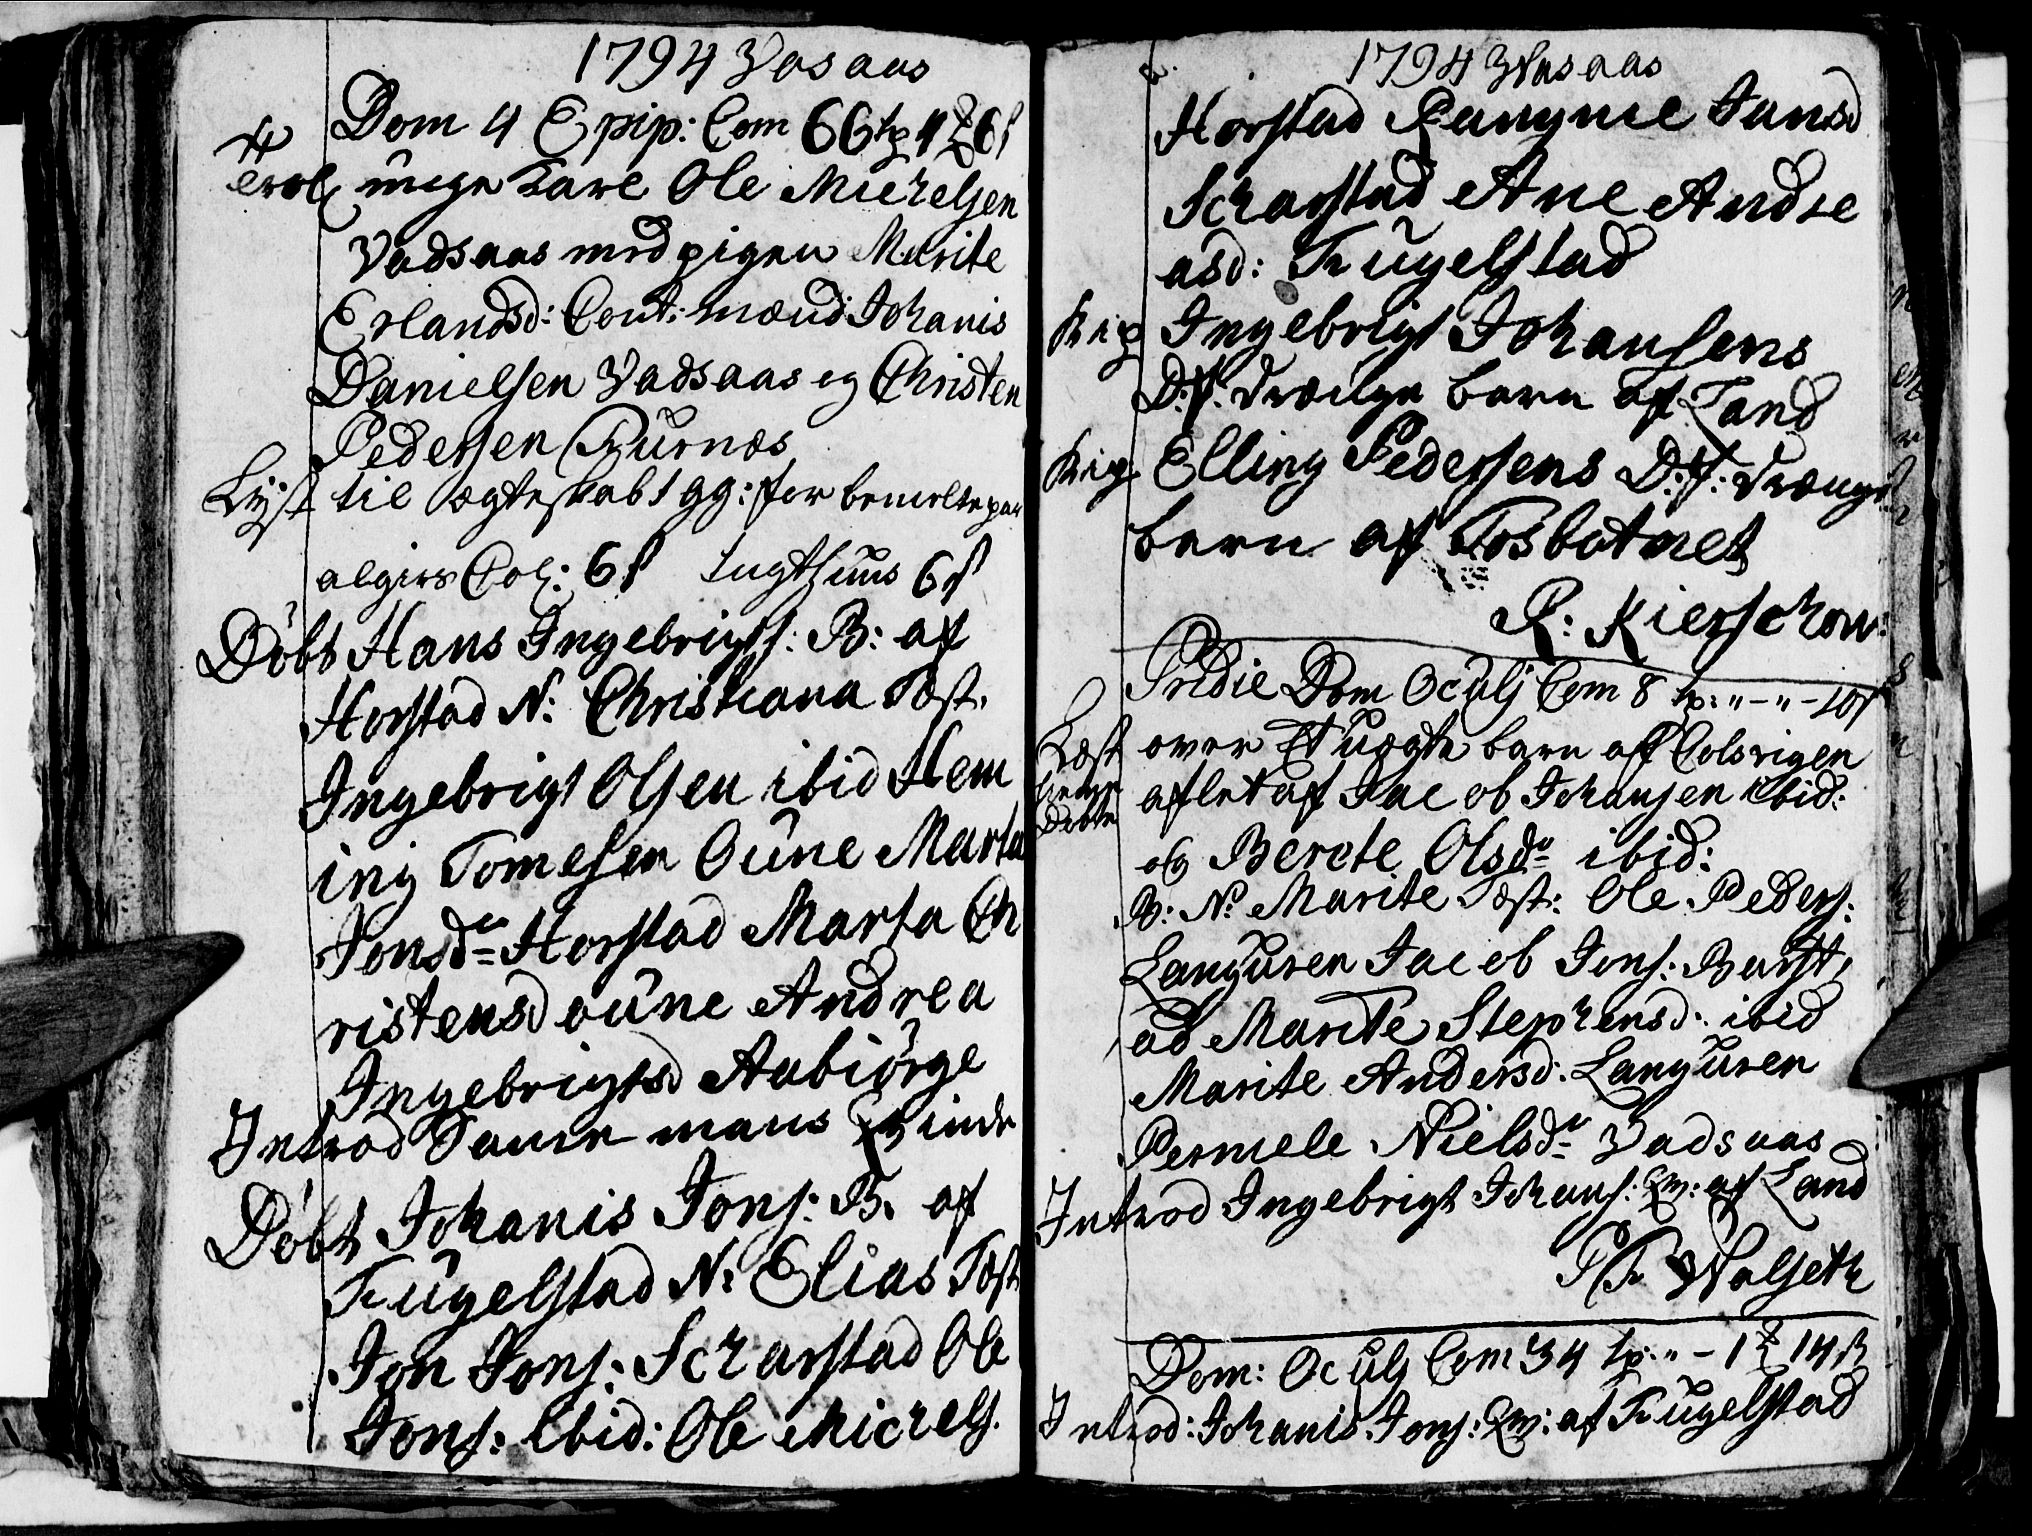 1794 Vasaas
Dom 4 Epip: Com 66 tp 4 6 s
unge Karl Ole Michelsen
Vadsaas med pigen Marite
Erlandsd: Cont: mænd Johanis
Danielsen Vadsaas og Christen
Pedersen
Lÿst til ægteskab 1 gg: for bemelte par
Col: 6 s tugthuus 6 s
Döbt Hans Ingebrigts: B: af
Horstad N: Christiana Test.
Ingebrigt Olsen ibid Hem
ing Tomesen Oune Marta
Jonsdr Horstad Marta Ch
ristensd oune Andrea
Ingebrigtsd Aabiörge
Introd Samme mans Qvinde
Döbt Johanis Jons: B. af
Fugelstad N: Elias Test
Jon Jons: Scharstad Ole
Jons: Ibid: Ole Michels.
1794 Wasaas
Horstad Jansd
Scharstad Ane Andre
asd: Fugelstad
Ingebrigt Johansens
D: f: drænge barn af Land
Elling Pedersens D: f: drænge
barn af Tosbotnet
R: Kierschow:
Pridie Dom Oculj Com 8 tp: " - " - 10 s
Læst over Et uægte barn af Colsvigen
hiemme aflet af Jacob Johansen Ibid:
Döbte og Berete Olsdr ibid:
B: N: Marite Test: Ole Peders:
Languren Jacob Jons: Barst,
ad Marite Stephensd: ibid
Marite Andersd: Languren
Pernele Nielsdr Vadsaas
Introd Ingebrigt Johans: Qv: af Land
Walseth
Dom: Oculj Com 34 tp: " - 1 14 s
Introd: Johanis Jons: Qv: af Fugelstad